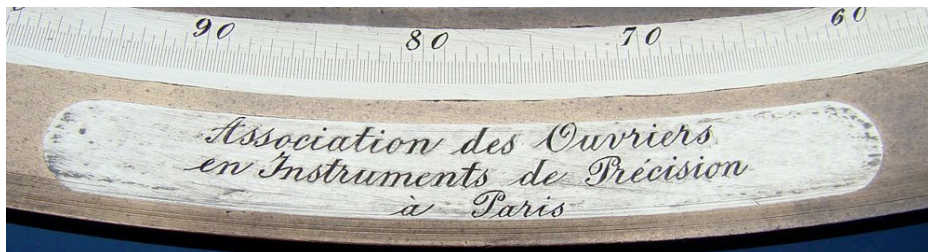 90 80 70 60
Association des Ouvriers
en Instruments de Précision
à Paris